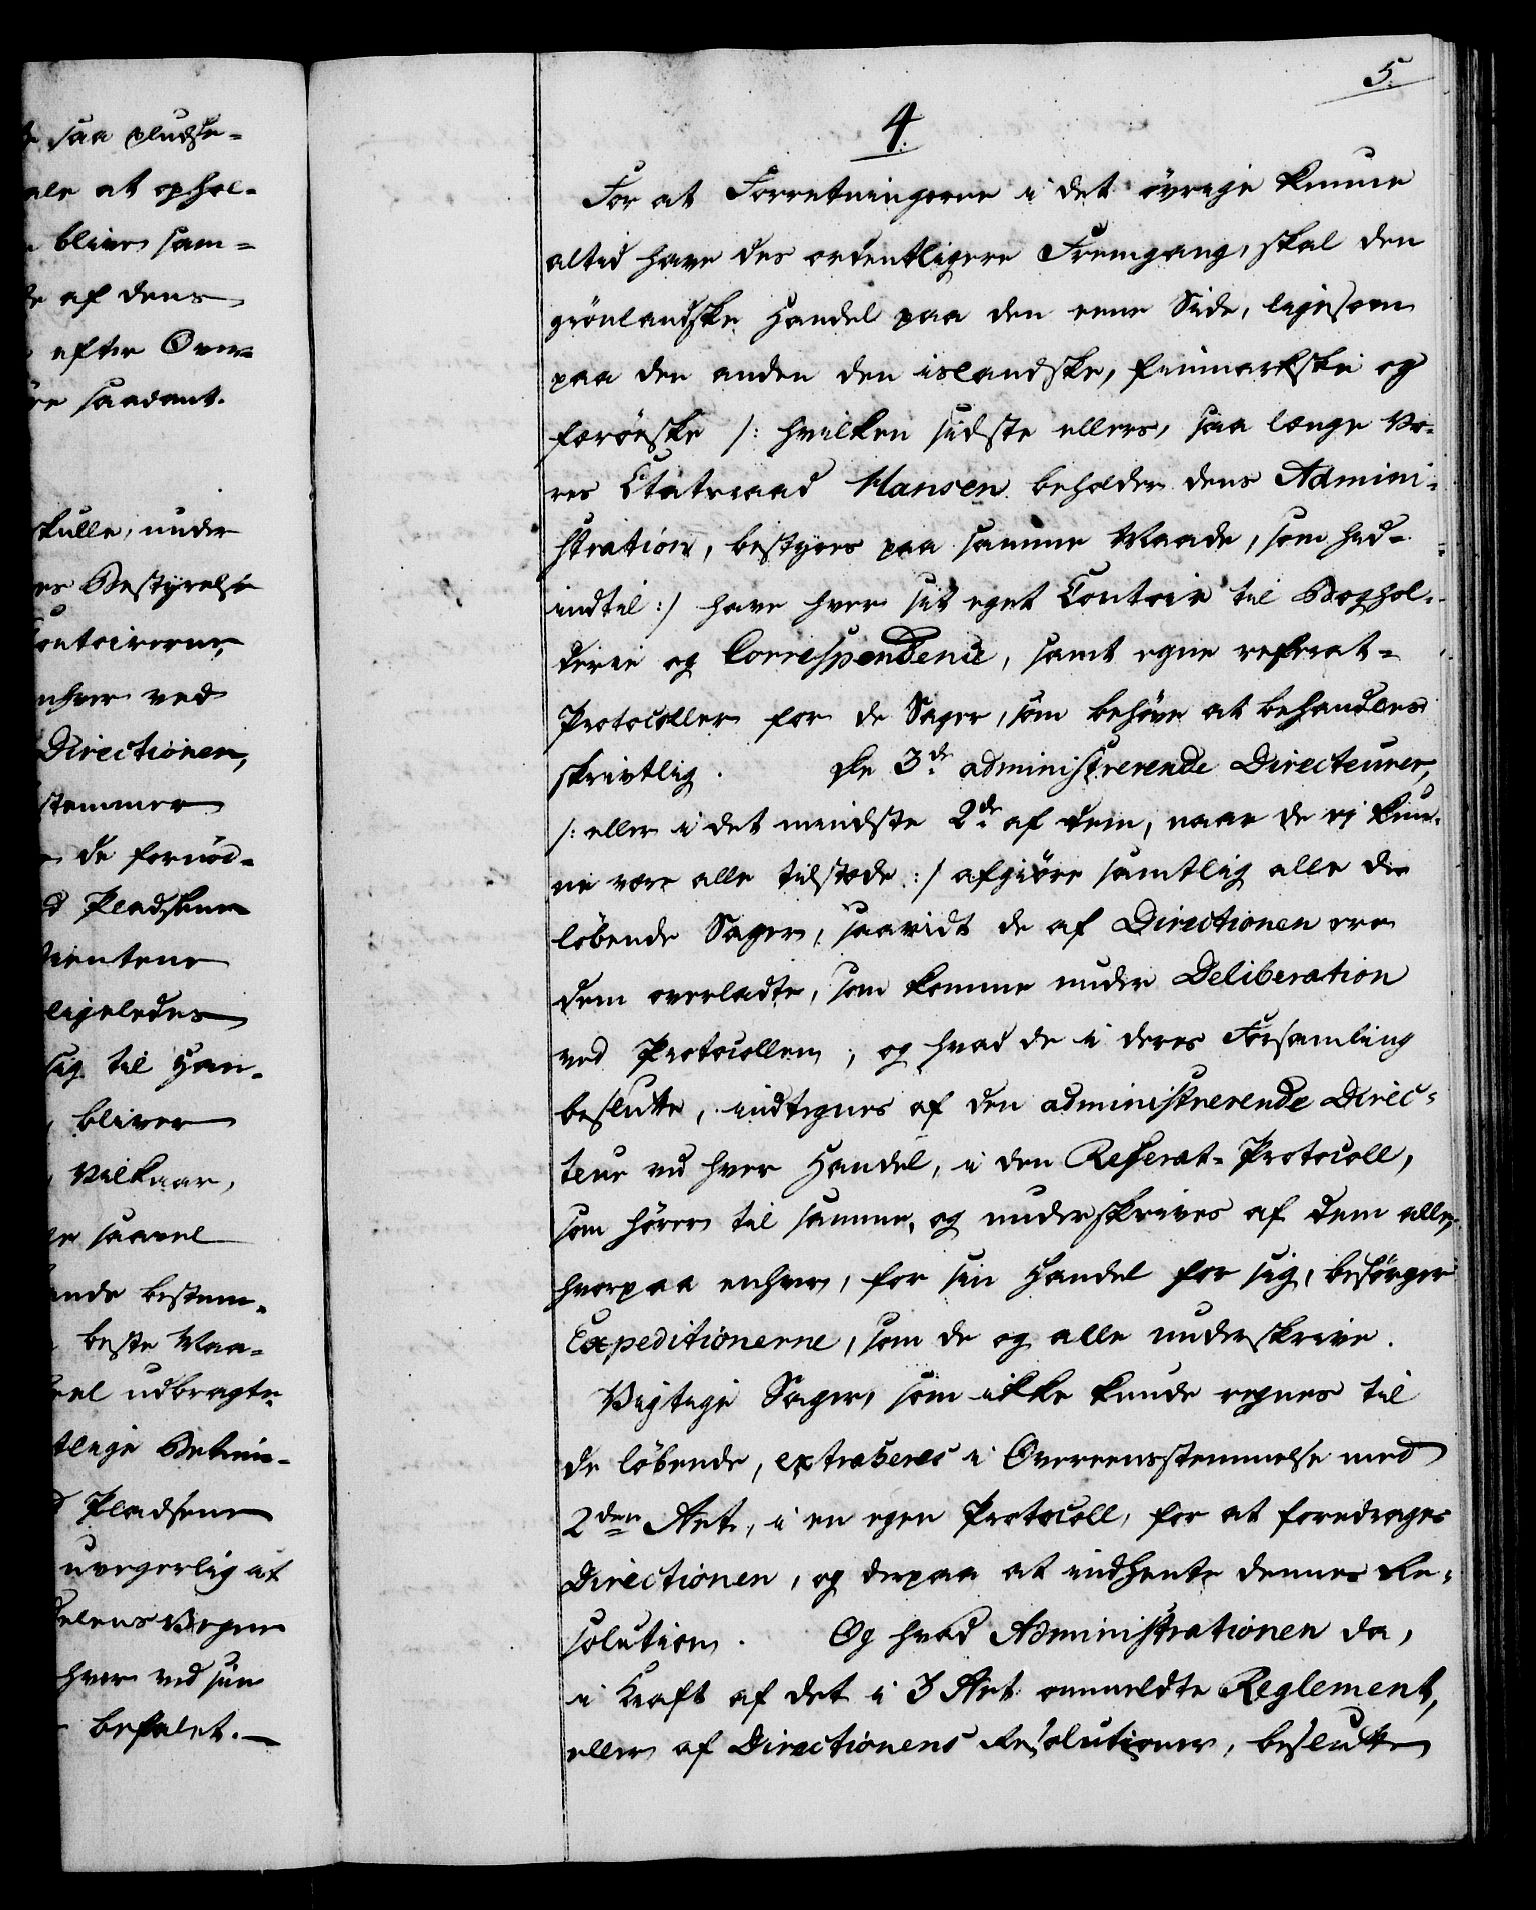 saa pludse-
ale at ophol-
bliver sam-
af dens
efter Over-
saadant.
skulle, under
es Bestyrelse
Contoirerne,
enhver ved
Directionen,
stemmer
de fornöd-
Pladserne
tientene
ligeledes
sig til Han-
bliver
Vilkaar,
saavel
ende bestem-
beste Maa-
udbragte
tlige Betien-
Pladsene
uvegerlig at
delens Vegne
hver ved sin
befalet.
5.
4.
For at Forretningerne i det övrige kunne
altid have des ordentligere Fremgang, skal den
grönlandske Handel paa den eene Side, ligesom
paa den anden den islandske, finmarkske og
færöeske /: hvilken sidste ellers, saa længe Vo-
res Etatsraad Hansen beholder dens Admini-
stration, bestyres paa samme Maade, som hid-
indtil :/ have hver sit eget Contoir til Boghol-
derie og Correspondence, samt egne referat-
Protocoller for de Sager, som behöve at behandles
skrivtlig. De 3de administrerende Directeurer,
/: eller i det mindste 2de af dem, naar de ej kun-
ne være alle tilstæde :/ afgiöre samtlig alle de
löbende Sager, saavidt de af Directionen ere
dem overladte, som komme under Deliberation
ved Protocollen; og hvad de i deres Forsamling
beslutte, indtegnes af den administrerende Direc-
teur ved hver Handel, i den Referat-Protocoll,
som hörer til samme, og underskrives af dem alle,
hvorpaa enhver, for sin Handel for sig, besörger
Expeditionerne, som de og alle underskrive.
Vigtige Sager, som ikke kunde regnes til
de löbende, extraheres i Overeensstemmelse med
2den Art., i en egen Protocoll, for at foredrages
Directionen, og derpaa at indhente dennes Re-
solution. Og hvad Administrationen da,
i Kraft af det i 3 Art. ommeldte Reglement,
eller af Directionens Resolutioner, beslutter